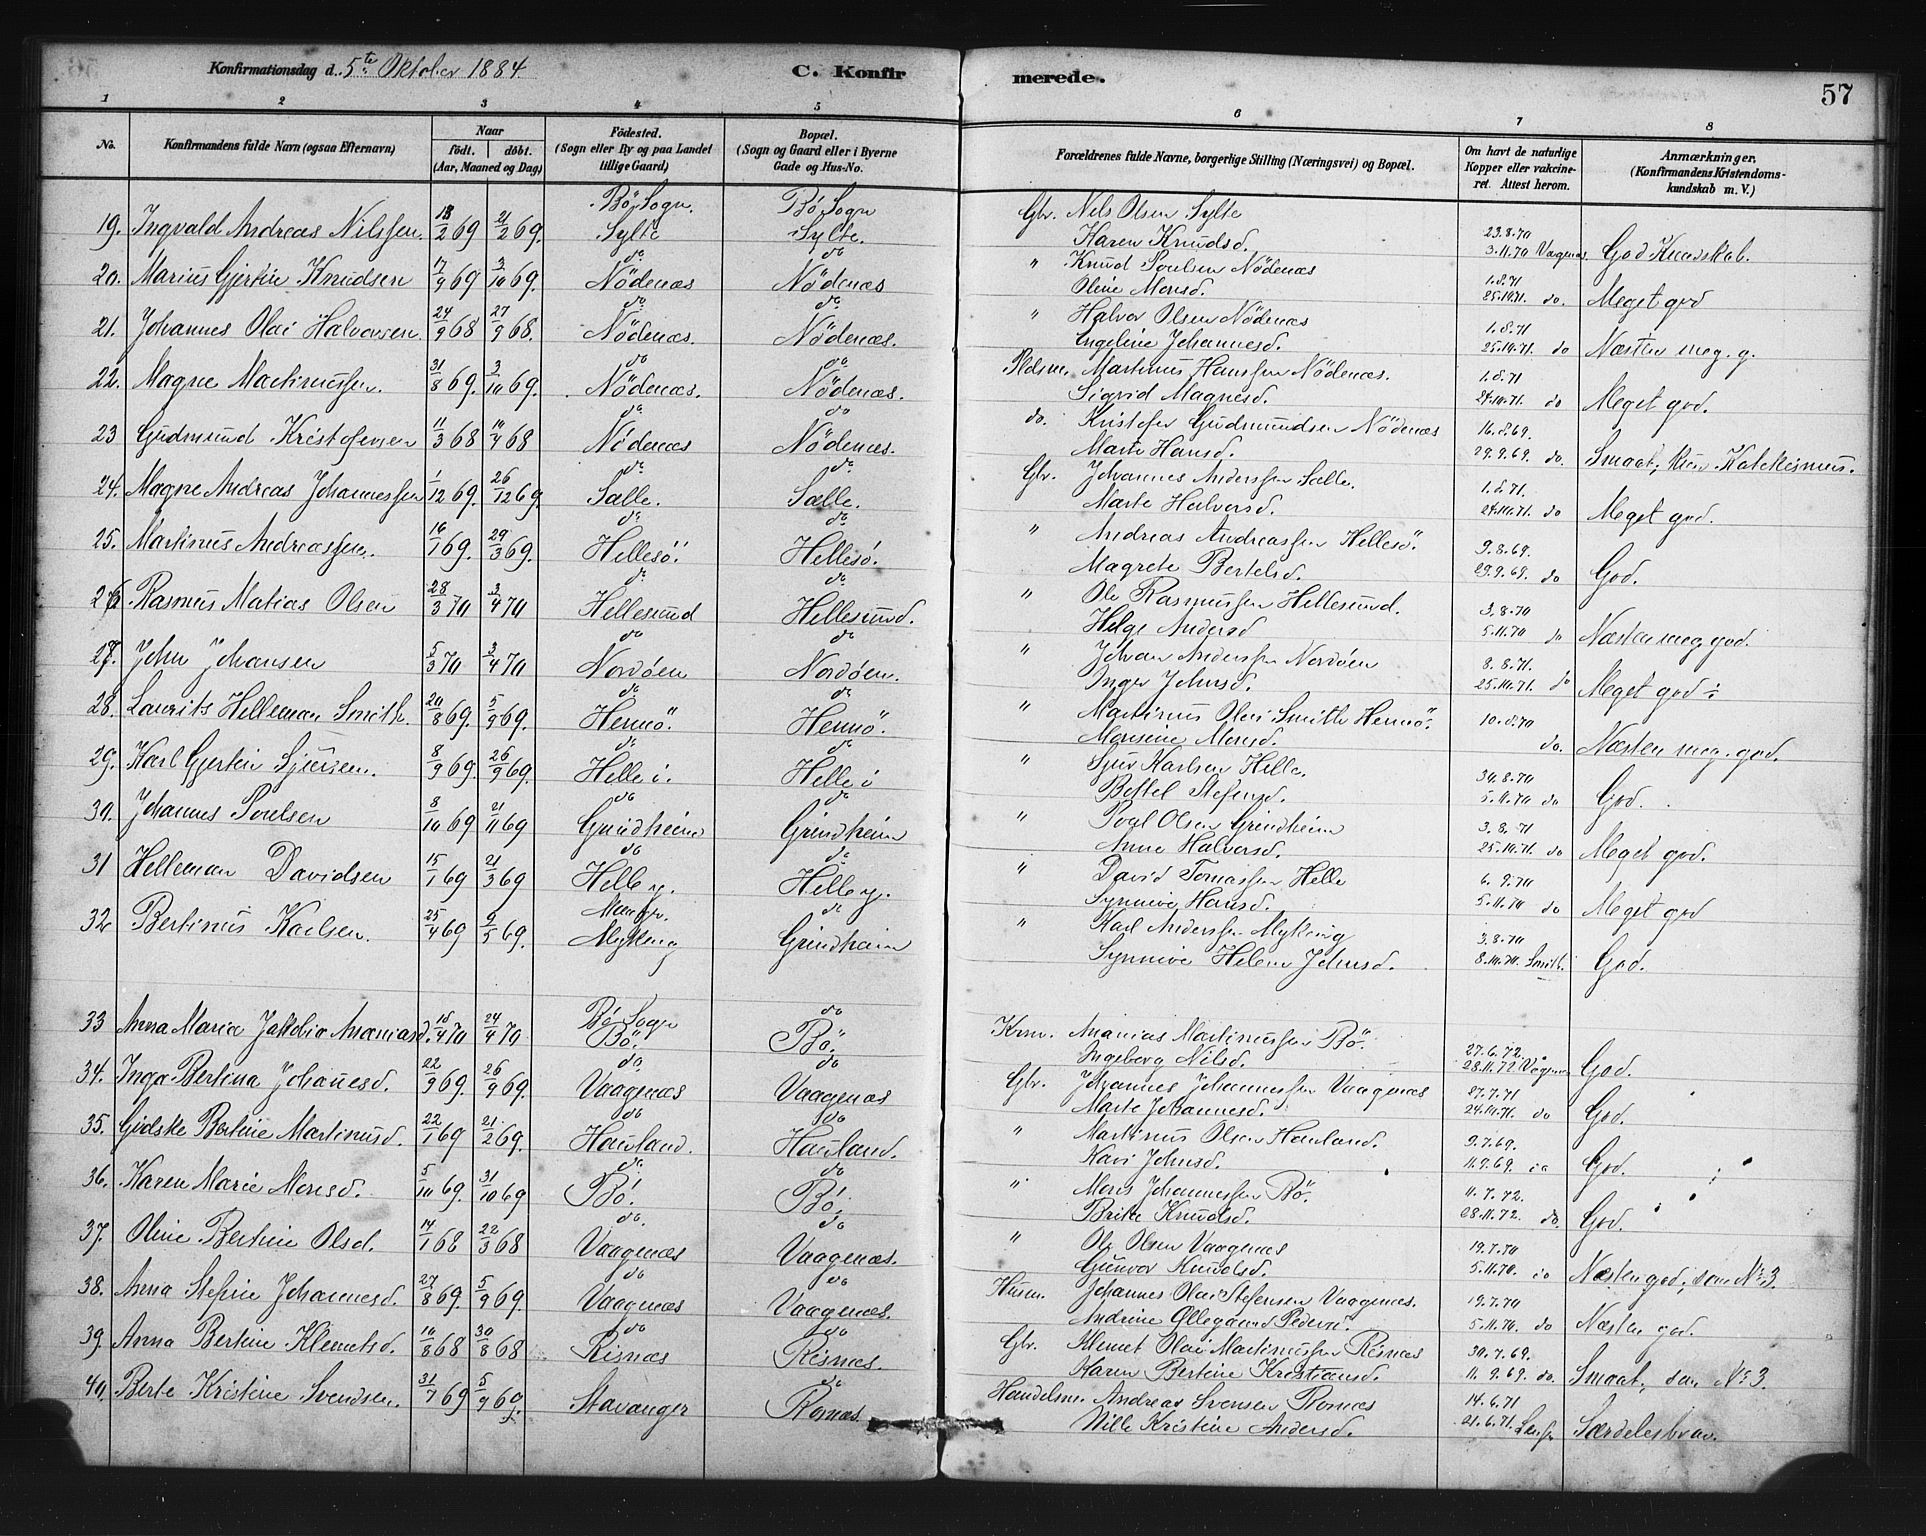 Konfirmationsdag d. 5te Oktober 1884. C. Konfirmerede. 57
1 2 3 4 5 6 7 8
No. Konfirmandens fulde Navn (ogsaa Efternavn) Naar födt. döbt. (Aar, Maaned og Dag) Födested. (Sogn eller By og paa Landet tillige Gaard) Bopæl. (Sogn og Gaard eller i Byerne Gade og Hus-No. Forældrenes fulde Navne, borgerlige Stilling (Næringsvei) og Bopæl. Om havt de naturlige Kopper eller vakcineret. Attest herom. Anmærkninger, (Konfirmandens Kristendomskundskab m. V.)
Bö Sogn. Bö Sogn
19. Ingvald Andreas Nilssen. 18/2 69 21/2 69. Sylte Sylte. Gbr. Nels Olsen Sylte
Karen Knudsd. 23.8.70 3.11.70 Vagenes God Kundskab.
do do
20. Marius Gjertin Knudsen 17/9 69 3/10 69. Nödenæs Nödenæs " Knud Poulsen Nödenæs
Oline Monsd. 1.8.71 25.10.71. do. Meget god
do do
21. Johannes Olai Halvorsen. 24/9 68 27/9 68. Nödenæs. Nödenæs. " Halvor Olsen Nödenæs
Engeline Johannesd. 1.8.71 25.10.71. do Næsten meg. g.
do do
22. Magne Martinussen. 31/8 69. 3/10 69. Nödenæs. Nödenæs. Pldsm. Martinus Hanssen Nödenæs.
Sigrid Magnesd. 1.8.71 24.10.71. do Meget god.
do do
23 Gudmund Kristofersen 11/3 68 14/4 68 Nödenæs Nödenæs. do. Kristofer Gudmundsen Nödenæs
Marte Hansd. 16.8.69. 29.9.69. do. Smaat, kun Katekismus.
do do
24. Magne Andreas Johannessen 1/12 69. 26/12 69. Sælle. Sælle. Gbr. Johannes Anderssen Sælle.
Marte Halvorsd. 1.8.71. 24.10.71. do Meget god.
do do
25. Martinus Andreassen. 16/1 69. 29/3 69. Hellesö. Hellesö. " Andreas Andreassen Hellesö.
Magrete Bertelsd. 9.8.69. 29.9.69. do God.
do do
26. Rasmus Matias Olsen 28/3 70 3/4 70 Hellesund Hellesund. " Ole Rasmussen Hellesund.
Helge Andersd 3.8.70 5.11.70 do Næsten meg. god.
do do
27. John Johansen 5/3 70 3/4 70 Nordöen Nordöen. " Johan Anderssen Nordöen
Inger Johnsd. 8.8.71. 25.10.71. do Meget god ÷
do do
28. Laurits Helleman Smith. 20/8 69. 5/9 69. Hernö. Hernö. " Martinus Olai Smith Hernö.
Monsine Monsd. 10.8.70 do. Næsten meg. god.
do do
29. Karl Gjertin Sjursen. 8/9 69. 26/9 69. Helle i. Helle i " Sjur Karlsen Helle.
Bertel Stefensd. 30.8.70 5.11.70 do God.
do do
30. Johannes Poulsen 8/10 69 21/11 69 Grindheim Grindheim " Poul Olsen Grindheim
Anne Halversd. 3.8.71 25.10.71. do Meget god.
do do
31 Helleman Davidsen 15/1 69 21/3 69 Helle y. Helle y. " David Tomassen Helle
Synnive Hansd. 6.9.70 5.11.70 do Meget god
Manger. do
32 Bertinus Karlsen. 25/4 69 9/5 69. Myking Grindheim " Karl Anderssen Myking
Synnive Helene Johnsd. 3.8.70 8.10.70. Smith. God.
Bö Sogn do
33 Anna Maria Jakobia Ananiasd. 15/4 70 24/4 70 Bö. Bö. Krm. Ananias Martinussen Bö.
Ingeborg Nilsd. 27.6.72. 28.11.72 Vågenæs God.
do do
34. Inga Bertina Johannesd. 22/9 69. 26/9 69. Vaagenæs Vaagenæs Gbr. Johannes Johannessen Vaagenæs
Marte Johannesd. 27.7.71 24.10.71. do God.
do do
35. Gidske Bertine Martinusd. 22/1 69. 21/2 69. Hauland. Hauland. " Martinus Olsen Hauland.
Kari Johnsd. 9.7.69. 11.9.69. do God.
do do
36. Karen Marie Monsd. 5/10 69. 31/10 69. Bö. Bö. " Mons Johannessen Bö.
Brite Knudsd. 11.7.72. 28.11.72. do. God.
do do
37. Oline Bertine Olsd. 14/1 68 22/3 68 Vaagenæs Vaagenæs. " Ole Olsen Vaagenæs
Gunvor Knudsd. 19.7.70 5.11.70. do Næsten god, som No 3.
do do
38. Anna Stefine Johannesd. 27/8 69. 5/9 69. Vaagenæs Vaagenæs. Husm. Johannes Olai Stefensen Vaagenæs.
Andrine Ollegaard Peders. 19.7.70 5.11.70. do Næsten god.
do do
39. Anna Bertine Klemetsd. 10/8 68 30/8 68 Risnæs Risnæs. Gbr. Klemet Olai Martinussen Risnæs
Karen Bertine Kristiansd. 30.7.69. 11.9.69 do. Smaat, som No 3.
do
40. Berte Kristine Svendsen. 31/7 69 5/9 69. Stavanger Rosnæs. Handelsm. Andreas Svensen Rosnæs
Nille Kristine Andersd. 14.6.71 21.6.71. Særdeles brav.